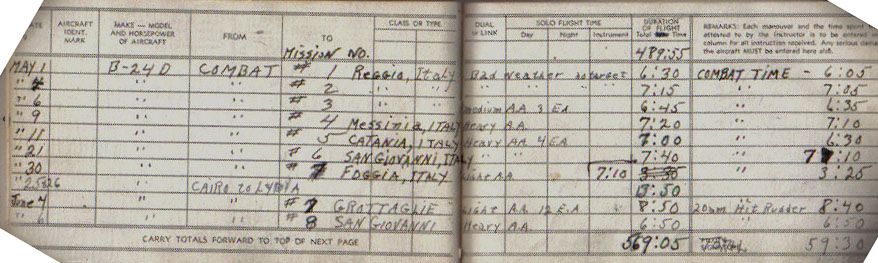 ATE AIRCRAFT IDENT. MARK MAKE — MODEL AND HORSEPOWER OF AIRCRAFT FROM TO CLASS OR TYPE DUAL or LINK SOLO FLIGHT TIME Day Night Instrument DURATION OF FLIGHT Total Time REMARKS: Each maneuver and the time spent attested to by the instructor is to be entered column for all instruction received. Any serious dama the aircraft MUST be entered here also.
MISSION NO. 489:55
MAY 1 B-24D COMBAT # 1 Reggio, Italy Bad Weather no target 6:30 COMBAT TIME - 6:05
" " " # 2 " " " " " 7:15 " 7:05
" 6 " " # 3 medium A.A. 3 EA 6:45 " 6:35
" 9 " " # 4 Messinia, ITALY Heavy A.A. 7:20 " 7:10
" 11 " " # 5 CATANIA, ITALY Heavy A.A. 4 EA 7:00 " 6:30
" 21 " " # 6 SAN GIOVANNI, ITALY " " 7:40 " 7:10
" 30 " " # 7 FOGGIA, ITALY Light AA 7:10 " 3:25
" 25&26 " CAIRO to LYBIA 13:50
June 4 " " # 7 GROTTAGLIE Light A.A. 12 E.A 8:50 20mm Hit Rudder 8:40
" 6 " " 8 SAN GIOVANNI Heavy A.A. 6:50 " 6:50
CARRY TOTALS FORWARD TO TOP OF NEXT PAGE 569:05 59:30